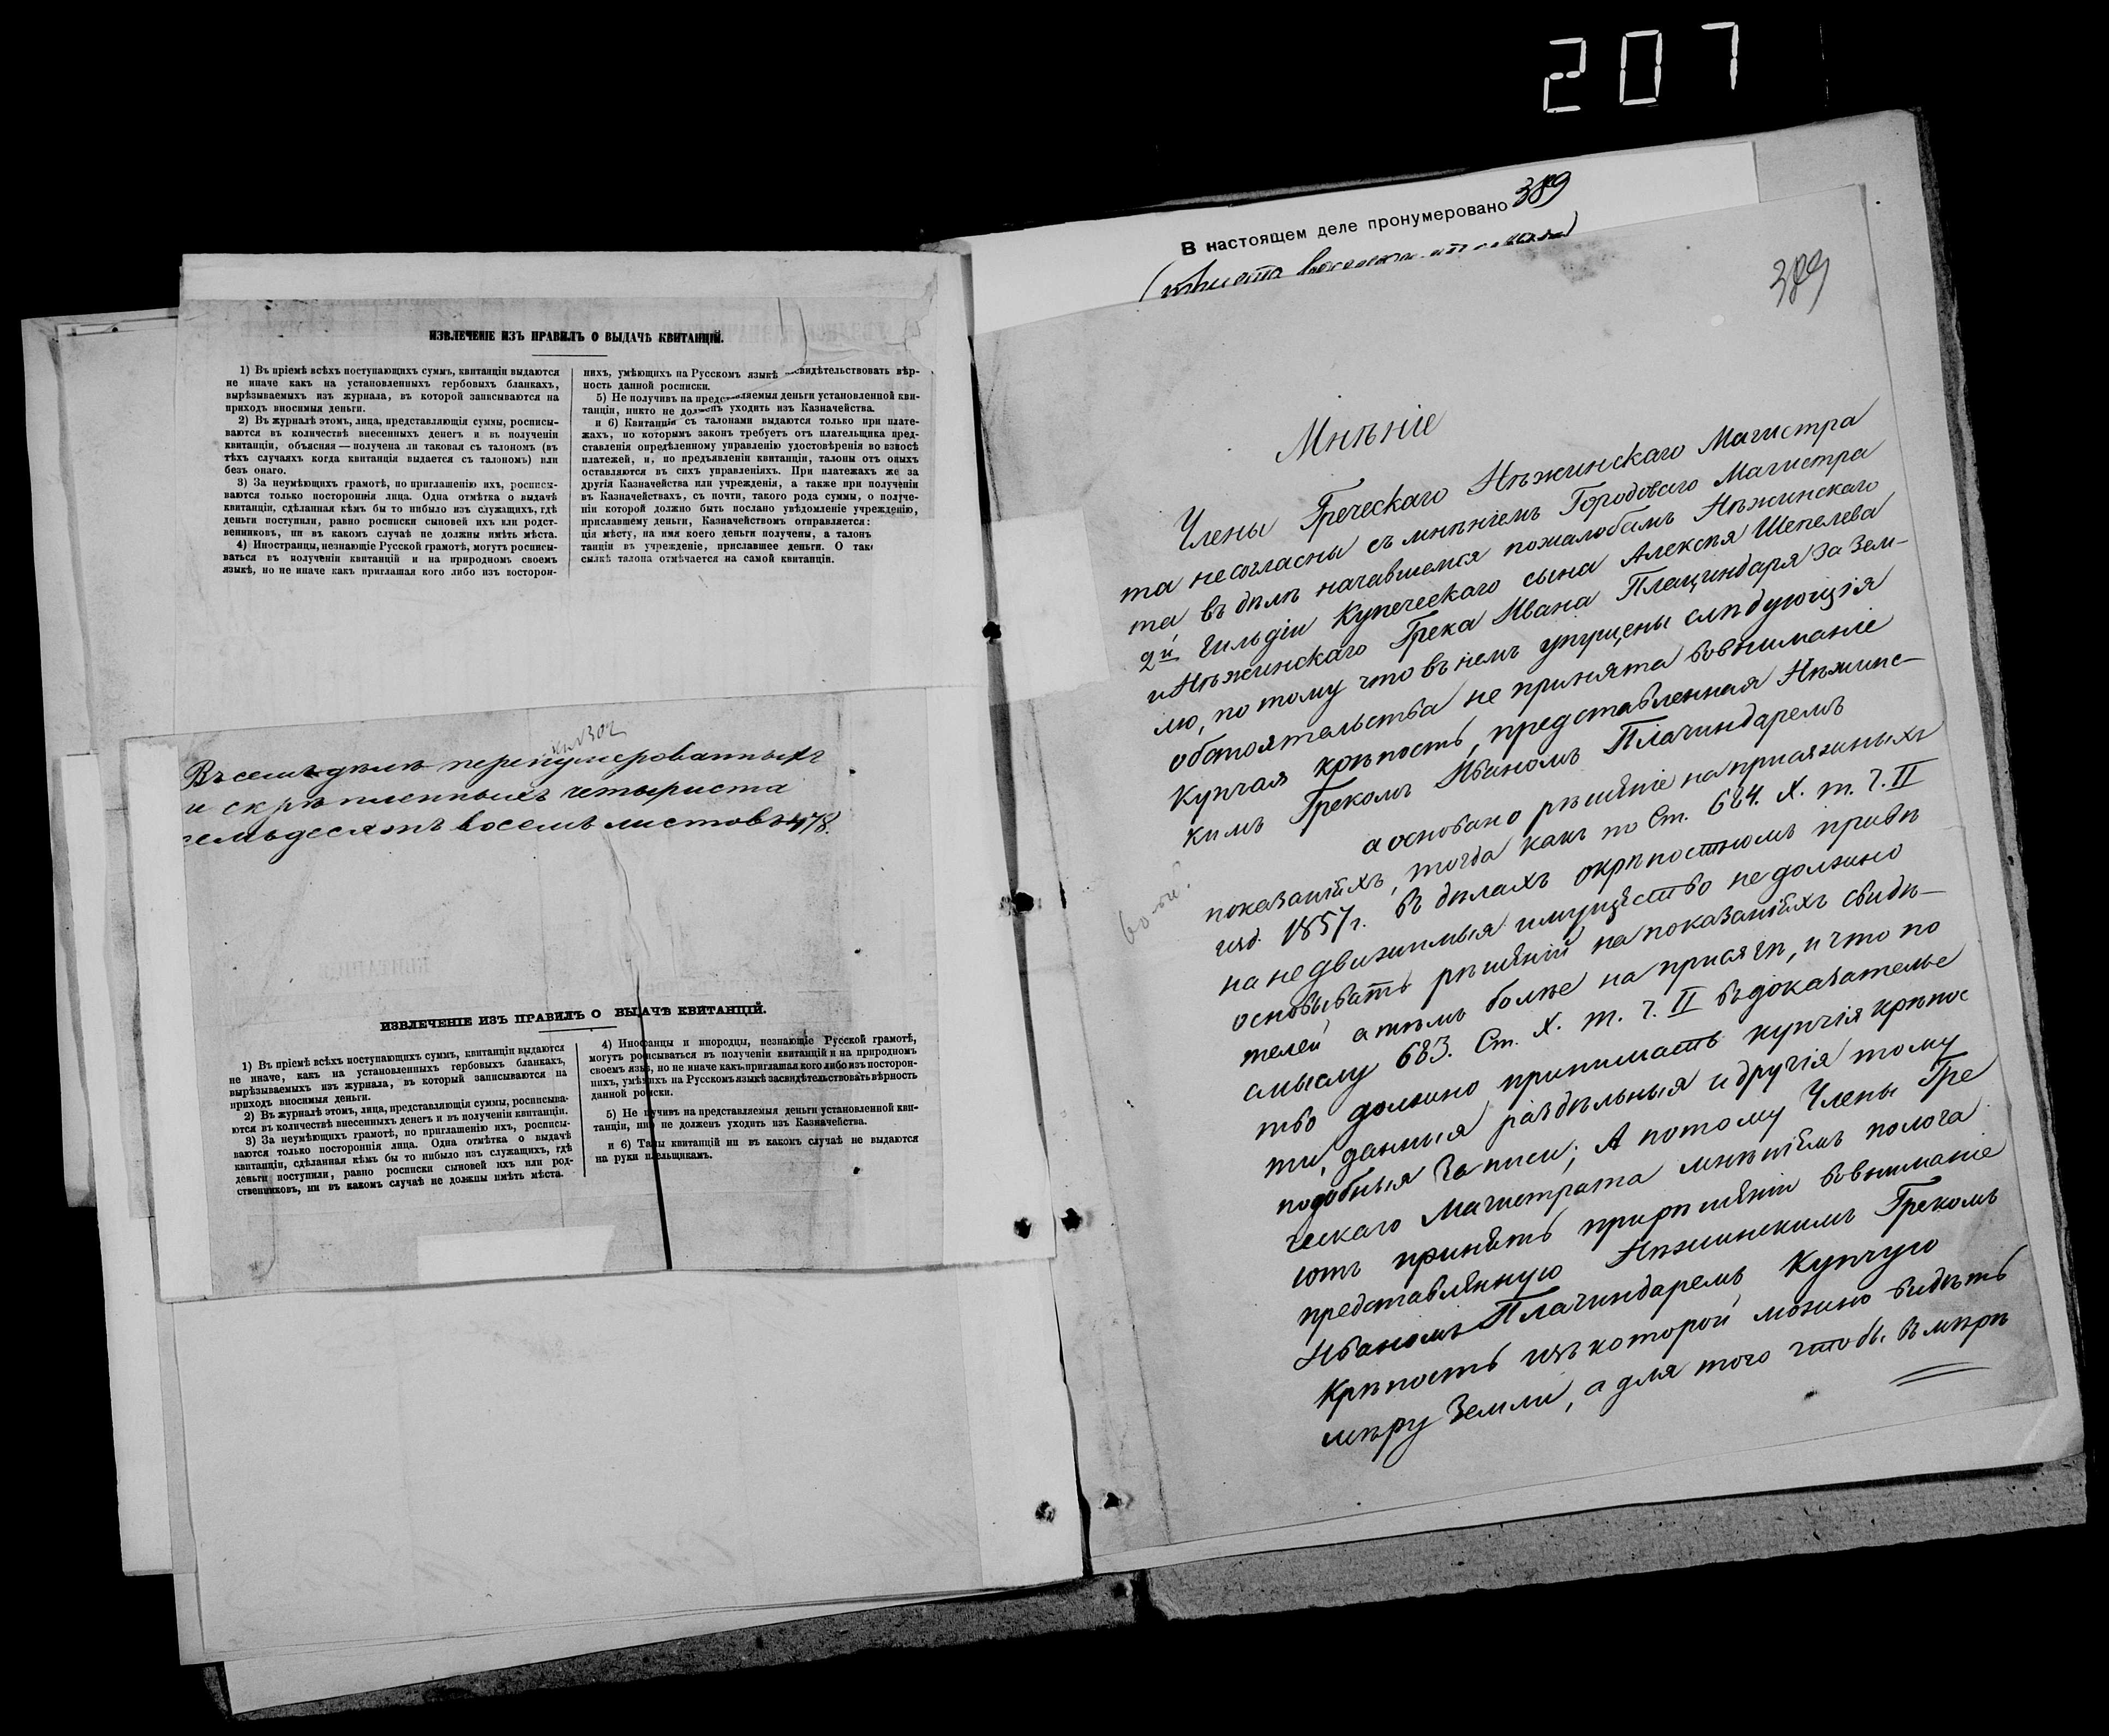 207
ИЗВЛЕЧЕНІЕ ИЗЪ ПРАВИЛЪ О ВЫДАЧѢ КВИТАНЦІЙ.
1) Въ пріемѣ всѣхъ поступающихъ суммъ, квитанціи выдаются
не иначе какъ на установленныхъ гербовыхъ бланкахъ,
вырѣзываемыхъ изъ журнала, въ которой записываются на
приходъ вносимыя деньги.
2) Въ журналѣ этомъ, лица, представляющія суммы, росписы-
ваются въ количествѣ внесенныхъ денегъ и въ полученіи
квитанціи, объясняя — получена ли таковая съ талономъ (въ
тѣхъ случаяхъ когда квитанція выдается съ талономъ) или
безъ онаго.
3) За неумѣющихъ грамотѣ, по приглашенію ихъ, росписы-
ваются только постороннія лица. Одна отмѣтка о выдачѣ
квитанціи, сдѣланная кѣмъ бы то нибыло изъ служащихъ, гдѣ
деньги поступили, равно росписки сыновей ихъ или родст-
венниковъ, ни въ какомъ случаѣ не должны имѣть мѣста.
4) Иностранцы, незнающіе Русской грамотѣ, могутъ росписы-
ваться въ полученіи квитанцій и на природномъ своемъ
языкѣ, но не иначе какъ приглашая кого либо изъ посторон-
нихъ, умѣющихъ на Русскомъ языкѣ свидѣтельствовать вѣр-
ность данной росписки.
5) Не получивъ на представляемыя деньги установленной кви-
танціи, никто не долженъ уходить изъ Казначейства.
и 6) Квитанціи съ талонами выдаются только при плате-
жахъ, по которымъ законъ требуетъ отъ плательщика пред-
ставленія опредѣленному управленію удостовѣренія во взносѣ
платежей, и, по предъявленіи квитанціи, талоны отъ оныхъ
оставляются въ сихъ управленіяхъ. При платежахъ же за
другія Казначейства или учрежденія, а также при полученіи
въ Казначействахъ, съ почти, такого рода суммы, о получе-
ніи которой должно быть послано увѣдомленіе учрежденію,
приславшему деньги, Казначействомъ отправляется:
ція мѣсту, на имя коего деньги получены, а талонъ
танціи въ учрежденіе, приславшее деньги. О так
сылкѣ талона отмѣчается на самой квитанціи.
Въ семъ дѣлѣ перенумерованныхъ
и скрѣпленныхъ четыриста
семьдесятъ восемь листовъ 478.
ИЗВЛЕЧЕНІЕ ИЗЪ ПРАВИЛЪ О ВЫДАЧѢ КВИТАНЦІЙ.
1) Въ пріемѣ всѣхъ поступающихъ суммъ, квитанціи выдаются
не иначе, какъ на установленныхъ гербовыхъ бланкахъ,
вырѣзываемыхъ изъ журнала, въ который записываются на
приходъ вносимыя деньги.
2) Въ журналѣ этомъ, лица, представляющія суммы, росписыва-
ются въ количествѣ внесенныхъ денегъ и въ полученіи квитанціи.
3) За неумѣющихъ грамотѣ, по приглашенію ихъ, росписы-
ваются только постороннія лица. Одна отмѣтка о выдачѣ
квитанціи, сдѣланная кѣмъ бы то нибыло изъ служащихъ, гдѣ
деньги поступили, равно росписки сыновей ихъ или род-
ственниковъ, ни въ какомъ случаѣ не должны имѣть мѣста.
4) Иностранцы и инородцы, незнающіе Русской грамотѣ,
могутъ росписываться въ полученіи квитанцій и на природномъ
своемъ языкѣ, но не иначе какъ приглашая кого либо изъ посторон-
нихъ, умѣющихъ на Русскомъ языкѣ засвидѣтельствовать вѣрность
данной росписки.
5) Не получивъ на представляемыя деньги установленной кви-
танціи, никто не долженъ уходить изъ Казначейства.
и 6) Талоны квитанцій ни въ какомъ случаѣ не выдаются
на руки плательщикамъ.
В настоящем деле пронумеровано 389
389
Мнѣніе
Члены Греческаго Нѣжинскаго Магистра
та несогласны съ мнѣніемъ Городоваго Магистра
та, въ дѣлѣ начавшемся пожалобамъ Нѣжинскаго
2й Гильдіи Купеческаго сына Алексѣя Шепелева
и Нѣжинскаго Грека Ивана Плациндаря За Зем-
лю, потому что въ немъ упущены слѣдующія
обстоятельства не принята вовниманіе
Купчая крѣпость, представленная Нѣжинс-
кимъ Грекомъ Иваномъ Плачиндаремъ
а основано рѣшеніе наприсяжныхъ
показаніяхъ, тогда какъ по Ст. 684. X. т. ч. II
изд. 1857 г. въ дѣлахъ окрѣпостномъ правѣ
на недвижимыя имущество недолжно
основывать рѣшеній на показаніяхъ свидѣ-
телей атѣмъ болѣе на присягѣ, и что по
смыслу 683. Ст. X. т. ч. II въдоказательс
тво должно принимать купчія крѣпос
ти, данныя раздѣльныя и другія тому
подобныя Записи; А потому Члены Гре
ческаго Магистрата мнѣніемъ полога
ютъ принять прирѣшеніи вовниманіе
представленную Нѣжинскимъ Грекомъ
Иваномъ Плачиндаремъ, Купчую
Крѣпость изъ которой можно видѣть
мѣру Земли, а для того чтобы вмѣрѣ